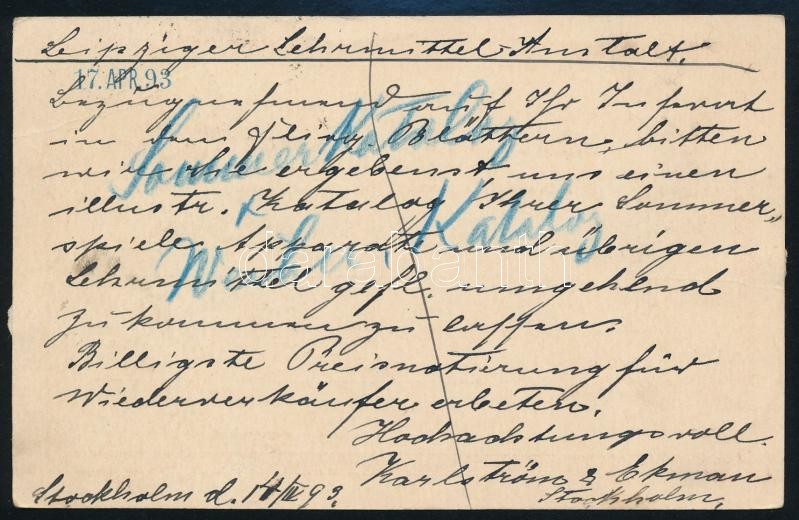 Leipziger Lehrmittel-Anstalt.
17. APR 93
Bezugnehmend auf Ihr Inserat
in den Flieg. Blättern, bitten
wir Sie ergebenst uns einen
illustr. Katalog Ihrer Sommer„
spiele Apparate und übrigen
Lehrmittel gefl. umgehend
zukommen zu lassen.
Billigste Preisnotierung für
Wiederverkäufer erbeten.
Hochachtungsvoll
Karlström & Ekman
Stockholm,
Stockholm d. 14/IV 93.
Sommer Katalog
Katalog
darabanth